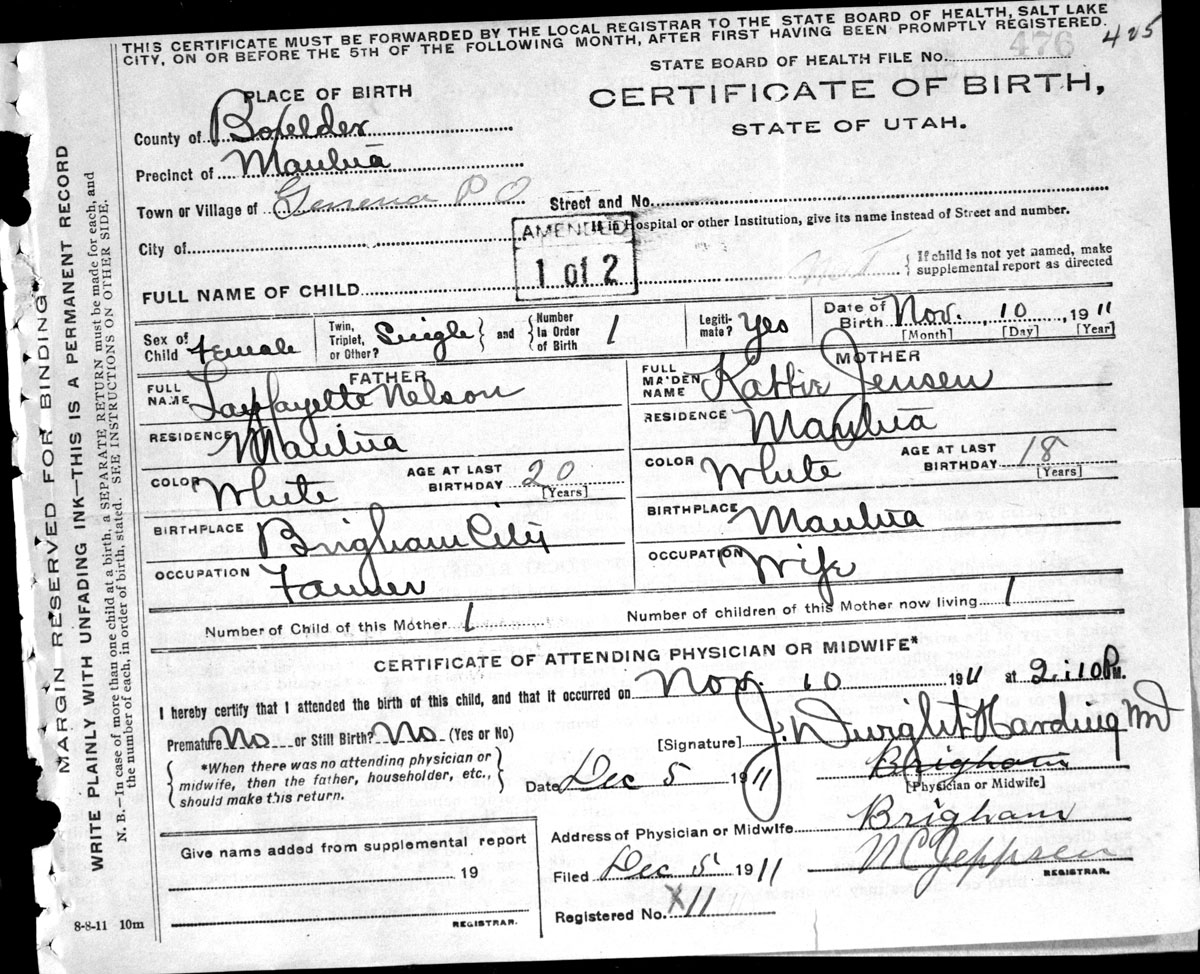 THIS CERTIFICATE MUST BE FORWARDED BY THE LOCAL REGISTRAR TO THE STATE BOARD OF HEALTH, SALT LAKE
CITY, ON OR BEFORE THE 5TH OF THE FOLLOWING MONTH, AFTER FIRST HAVING BEEN PROMPTLY REGISTERED.
476 405
STATE BOARD OF HEALTH FILE No.
CERTIFICATE OF BIRTH,
STATE OF UTAH.
PLACE OF BIRTH
County of Boxelder
Precinct of Mantua
Town or Village of Geneva P O Street and No.
If in Hospital or other Institution, give its name instead of Street and number.
City of
AMENDED
1 of 2
FULL NAME OF CHILD
If child is not yet named, make
supplemental report as directed
Sex of Child Female
Twin, Triplet, or Other? Single and Number in Order of Birth 1
Legitimate? Yes
Date of Birth Nov. 10, 1911
[Month] [Day] [Year]
FATHER
FULL NAME Laffayette Nelson
RESIDENCE Mantua
COLOR White AGE AT LAST BIRTHDAY 20 [Years]
BIRTHPLACE Brigham City
OCCUPATION Farmer
MOTHER
FULL MAIDEN NAME Kattie Jensen
RESIDENCE Mantua
COLOR White AGE AT LAST BIRTHDAY 18 [Years]
BIRTHPLACE Mantua
OCCUPATION Wife
Number of Child of this Mother 1 Number of children of this Mother now living 1
CERTIFICATE OF ATTENDING PHYSICIAN OR MIDWIFE*
I hereby certify that I attended the birth of this child, and that it occurred on Nov. 10 1911 at 2:10 P.M.
Premature No or Still Birth? No (Yes or No)
*When there was no attending physician or
midwife, then the father, householder, etc.,
should make this return.
[Signature] J. Dwight Harding MD
Date Dec 5 1911 Brigham
[Physician or Midwife]
Address of Physician or Midwife Brigham
Filed Dec 5 1911 N C Jeppsen
REGISTRAR.
Registered No. X11
Give name added from supplemental report
19
REGISTRAR.
8-8-11 10m
MARGIN RESERVED FOR BINDING
WRITE PLAINLY WITH UNFADING INK—THIS IS A PERMANENT RECORD
N. B.—In case of more than one child at a birth, a SEPARATE RETURN must be made for each, and
the number of each, in order of birth, stated. SEE INSTRUCTIONS ON OTHER SIDE.